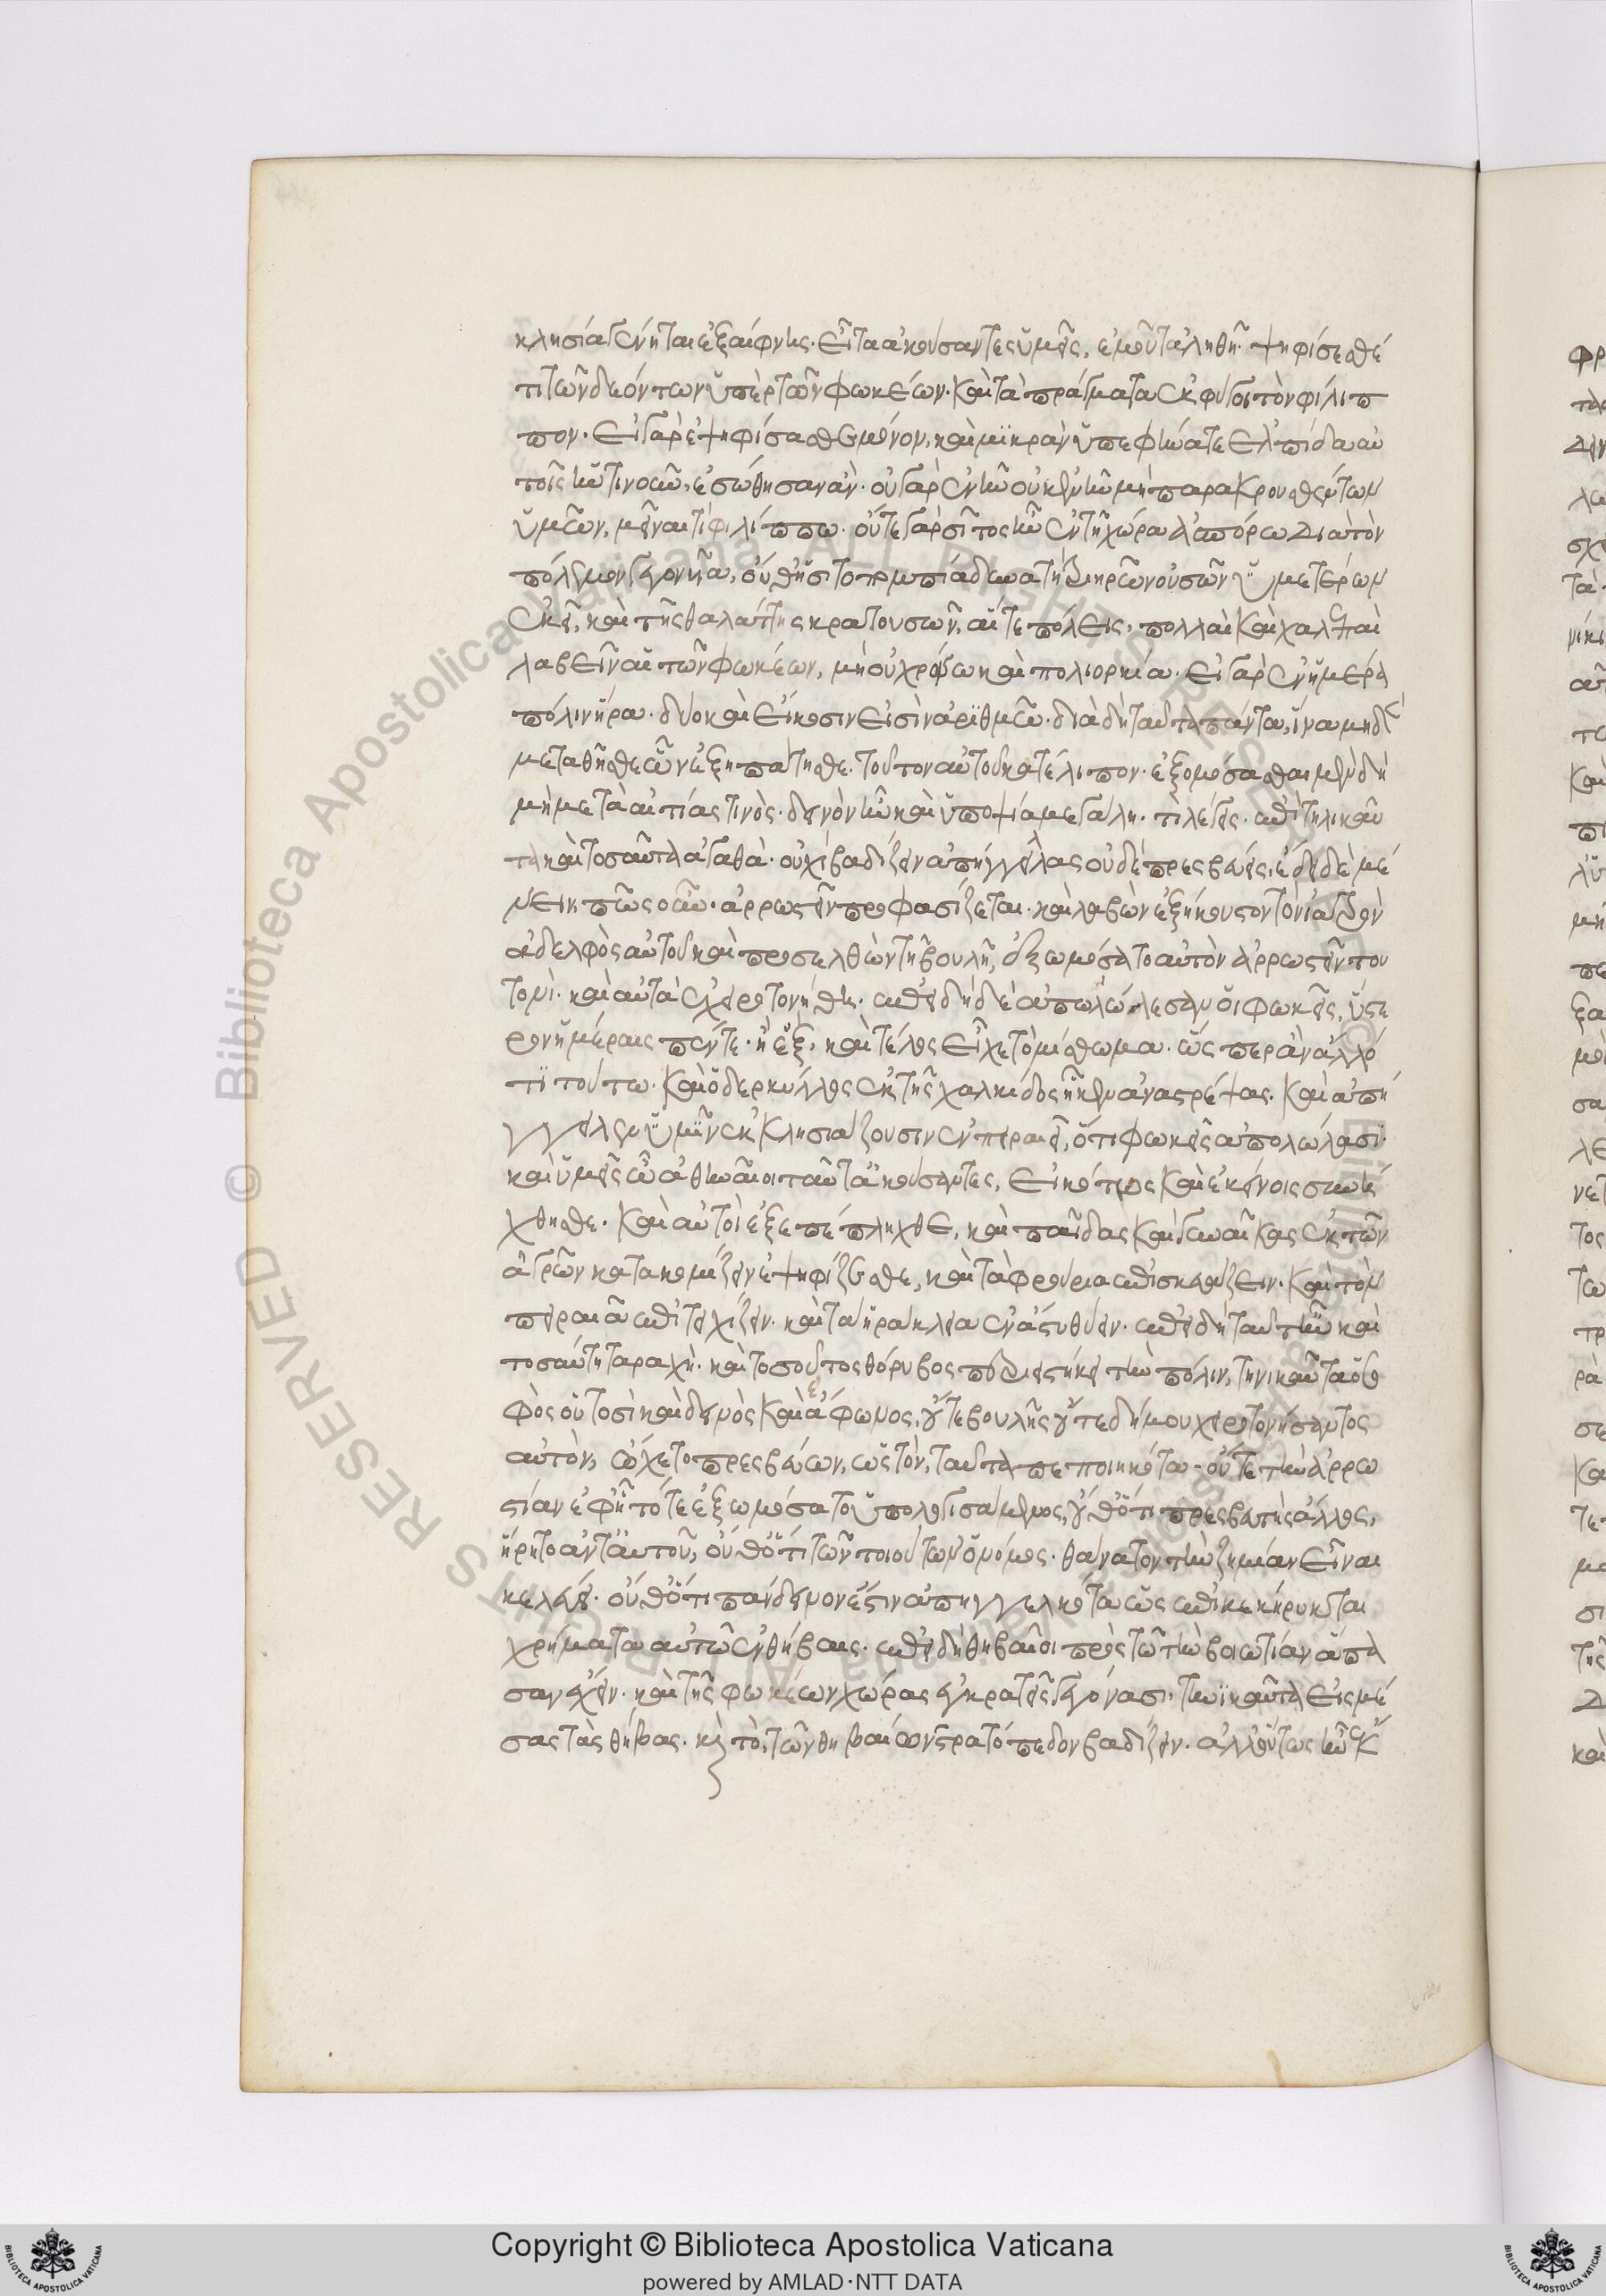 κλησία γένηται ἐξαίφνης. εἶτα ἀκούσαντες ὑμεῖς, ἐμοῦ τἀληθῆ. ψηφίσησθέ
τι τῶν δεόντων ὑπὲρ τῶν φωκέων. καὶ τὰ πράγματα ἐκφύγοι τὸν φίλιπ
πον. εἰ γὰρ ἐψηφίσασθε μόνον, καὶ μικρὰν ὑπεφήνατε ἐλπίδα αὐ
τοῖς ἥντινοῦν, ἐσώθησαν ἄν. οὐ γὰρ ἐνῆν οὐκ ἐνῆν μὴ παρακρουσθέντων
ὑμῶν, μεῖναι τῷ φιλίππῳ. οὔτε γὰρ σῖτος ἦν ἐν τῇ χώρᾳ ἀσπόρῳ διὰ τὸν
πόλεμον γεγονυῖα, οὔθ' ἡ σιτοπομπία δυνατὴ τριηρῶν οὐσῶν ὑμετέρων
ἐκεῖ, καὶ τῆς θαλάττης κρατουσῶν, αἵ τε πόλεις, πολλαὶ καὶ χαλεπαὶ
λαβεῖν αἱ τῶν φωκέων, μὴ οὐ χρόνῳ καὶ πολιορκίᾳ. εἰ γὰρ ἐν ἡμέρᾳ
πόλιν ᾕρει. δύο καὶ εἴκοσιν εἰσὶν ἀριθμῷ. διὰ δὴ ταῦτα πάντα, ἵνα μηδὲ
μεταθῆσθε ὧν ἐξηπάτησθε. τοῦτον αὐτοῦ κατέλιπον. ἐξομόσασθαι μὲν δὴ
μὴ μετὰ αἰτίας τινός. δεινὸν ἦν καὶ ὑποψία μεγάλη. τί λέγεις. ἐπὶ τηλικαῦ
τα καὶ τοσαῦτα ἀγαθὰ. οὐχὶ βαδίζειν ἀπήγγελας οὐδὲ πρεσβεύεις, ἔδει δὲ μέ
νειν πῶς οὖν. ἀρρωστεῖν προφασίζεται. καὶ λαβὼν ἐξήκεστον τὸν ἰατρὸν
ἀδελφὸς αὐτοῦ καὶ προσελθὼν τῇ βουλῇ, ἐξωμόσατο αὐτὸν ἀρρωστεῖν του
τονί. καὶ αὐτὸς ἐχειροτονήθη. ἐπειδὴ δὲ ἀπωλώλεσαν οἱ φωκεῖς, ὕστε
ρον ἡμέραις πέντε. ἢ ἕξ. καὶ τέλος εἶχε τὸ μίσθωμα. ὥσπερ ἂν ἄλλό
τι τούτῳ. καὶ ὁ δερκύλλος ἐκ τῆς χαλκίδος ἧκεν ἀναστρέψας. καὶ ἀπή
γγειλεν ὑμῖν ἐκκλησιάζουσιν ἐν πειραιεῖ, ὅτι φωκεῖς ἀπολώλασι.
καὶ ὑμεῖς ὦ ἀθηναῖοι ταῦτα ἀκούσαντες, εἰκότως καὶ ἐκείνοις συνή
χθησθε. καὶ αὐτοὶ ἐξεπέπληχθε, καὶ παῖδας καὶ γυναῖκας ἐκ τῶν
ἀγρῶν κατακομίζειν ἐψηφίζεσθε, καὶ τὰ φρούρια ἐπισκευάζειν. καὶ τὸν
πειραιᾶ ἐπιτειχίζειν. καὶ τὰ ἡράκλεια ἐν ἄστει θύειν. ἐπειδὴ ταῦτ' ἦν καὶ
τοσαύτη ταραχὴ. καὶ τοσοῦτος θόρυβος περιειστήκει τὴν πόλιν, τηνικαῦτα ὁ σο
φὸς οὑτοσὶ καὶ δεινὸς καὶ εὔφωνος, οὔτε βουλῆς οὔτε δήμου χειροτονήσαντος
αὐτόν, ᾤχετο πρεσβεύων, ὡς τόν, ταῦτα πεποιηκότα. οὔτε τὴν ἀρρω
στίαν ἐφ' ᾗ τότε ἐξωμόσατο ὑπολογισάμενος, οὔθ' ὅτι πρεσβευτὴς ἄλλος,
ᾕρητο ἀντ' αὐτοῦ, οὔθ' ὅτι τῶν τοιούτων ὁ νόμος. θάνατον τὴν ζημίαν εἶναι
κελεύει. οὔθ' ὅτι πάνδεινον ἐστιν ἀπηγγελκότα ὡς ἐπικεκήρυκται
χρήματα αὐτῷ ἐν θήβαις. ἐπειδὴ θηβαῖοι πρὸς τῷ τὴν βοιωτίαν ἅπα
σαν ἔχειν. καὶ τῆς φωκέων χώρας ἐγκρατεῖς γεγόνασι, τηνικαῦτα εἰς μέ
σας τὰς θήβας. καὶ τὸ, τῶν θηβαίων στρατόπεδον βαδίζειν. ἀλλ' οὕτως ἦν ἔκ